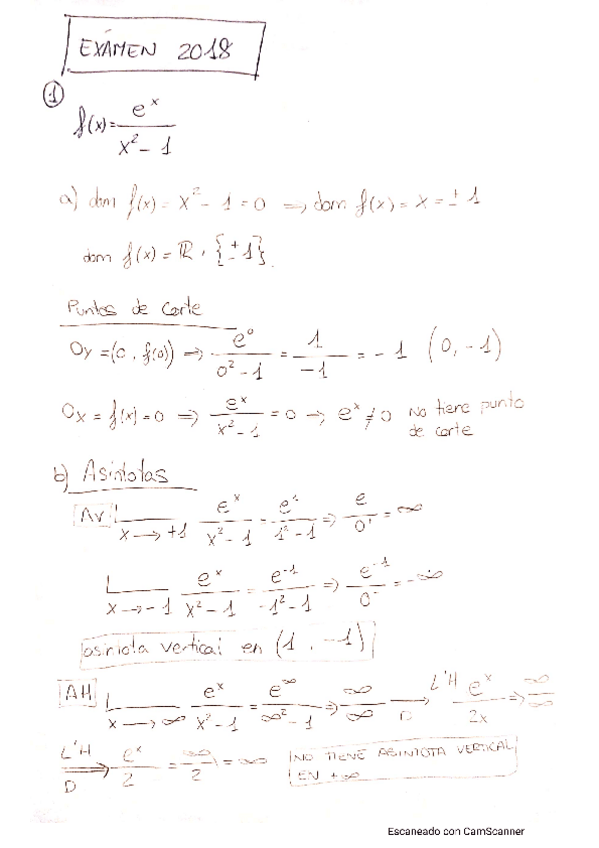 EXÁMEN 2018
1
f(x)= e^x / x² - 1
a) dom f(x) = x² - 1 = 0 => dom f(x) = x = ± 1
dom f(x) = ℝ · {± 1}
Puntos de corte
Oy = (0, f(0)) => e⁰ / 0² - 1 = 1 / -1 = - 1 (0, -1)
Ox = f(x) = 0 => e^x / x² - 1 = 0 -> e^x ≠ 0 No tiene punto
de corte
b) Asintotas
AV L x -> +1 e^x / x² - 1 = e¹ / 1² - 1 => e / 0⁺ = ∞
L x -> -1 e^x / x² - 1 = e^-1 / -1² - 1 => e^-1 / 0⁻ = -∞
asintota vertical en (1, -1)
AH L x -> ∞ e^x / x² - 1 = e^∞ / ∞² - 1 => ∞ / ∞ -> L'H D e^x / 2x => ∞ / ∞
L'H => D e^x / 2 = ∞ / 2 = ∞ NO TIENE ASINTOTA VERTICAL
EN +∞
Escaneado con CamScanner